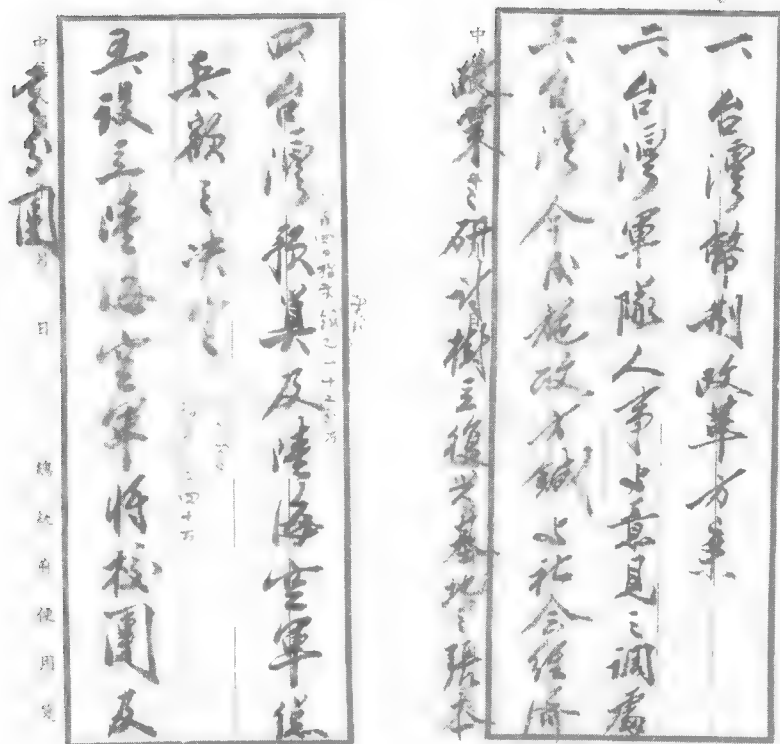 一、台灣幣制改革方案
二、台灣軍隊人事與意見之調處
三、台灣今後施政方鍼與社会經濟
政策之研討樹立復兴基地之張本
四、台灣預算及陸海空軍總
兵額之決定
四十万
五、設立陸海空軍将校團及
分團
中
日
總統府便用箋